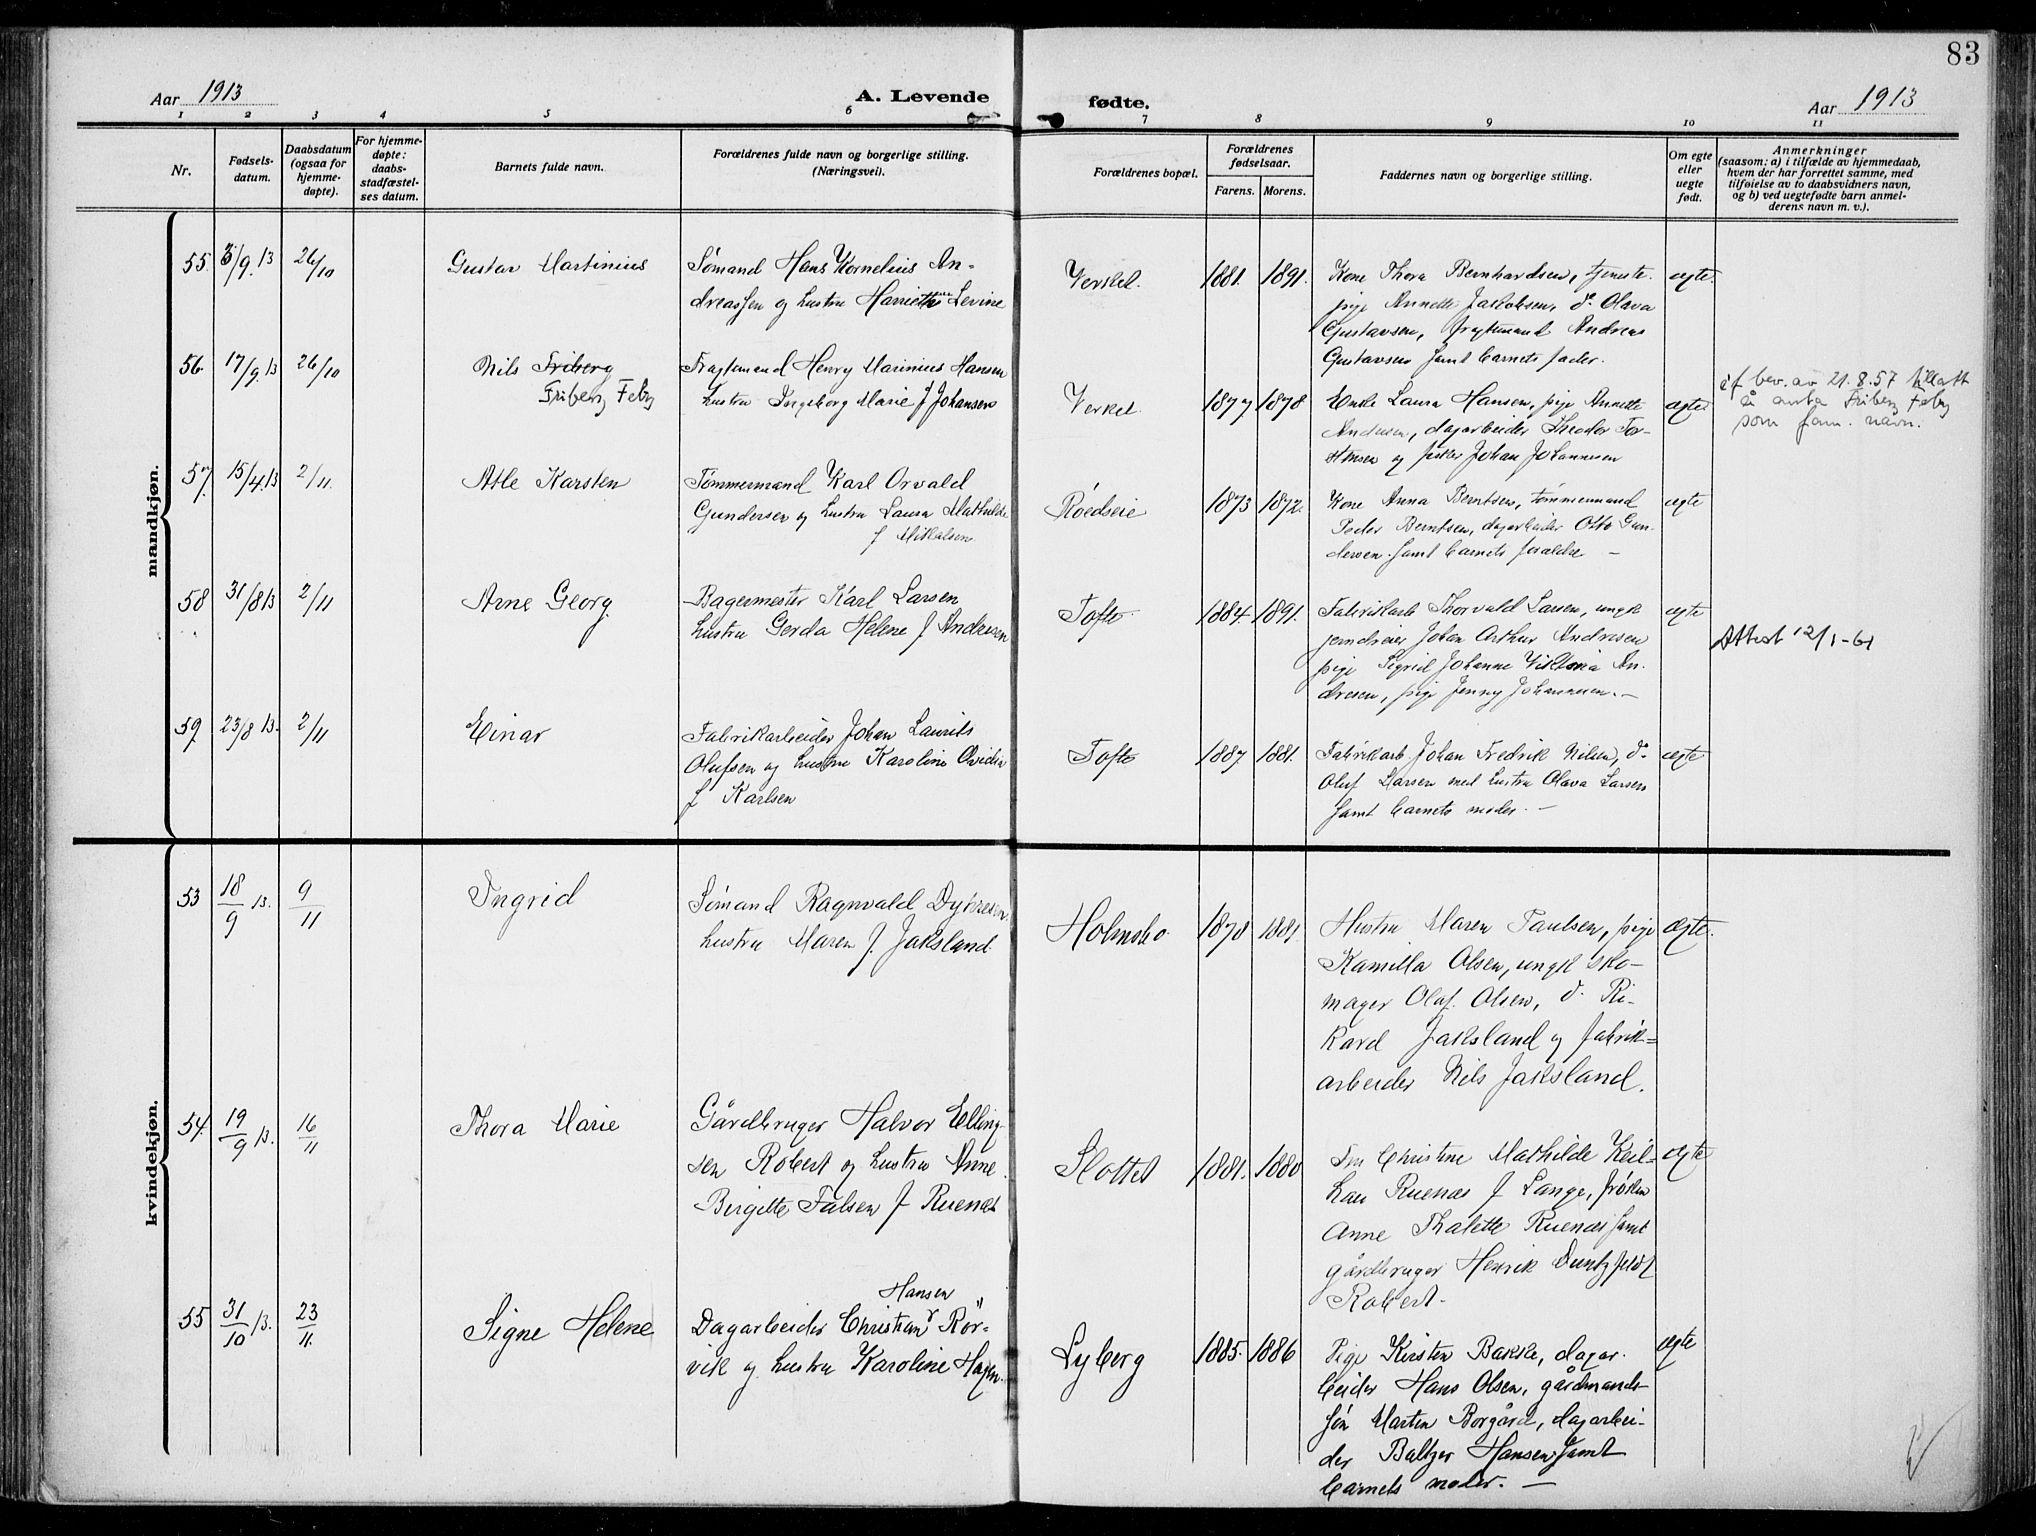 83
Aar 1913
A. Levende
fødte.
Aar 1913
1 2 3 4 5 6 7 8 9 10 11
Nr.
Fødsels-
datum.
Daabsdatum
(ogsaa for
hjemme-
døpte).
For hjemme-
døpte:
daabs-
stadfæstel-
ses datum.
Barnets fulde navn.
Forældrenes fulde navn og borgerlige stilling.
(Næringsveil).
Forældrenes bopæl.
Forældrenes
fødselsaar.
Farens. Morens.
Faddernes navn og borgerlige stilling.
Om egte
eller
uegte
født.
Anmerkninger
(saasom: a) i tilfælde av hjemmedaab,
hvem der har forrettet samme, med
tilføielse av to daabsvidners navn,
og b) ved uegtefødte barn anmel-
derens navn m. v.).
mandkjøn.
55. 3/9 13 26/10 Gustav Martinius
Sømand Hans Kornelius An-
dreassen og hustru Harriethe Levine
Verket. 1881. 1891.
Kone Thora Bernhardsen, tjeneste-
pige Annette Jakobsen, do Olava
Gustavsen, fragtemand Andreas
Gustavsen samt barnets fader.
egte.
56. 17/9 13 26/10 Nils Friberg
Friberg Feby
Fragtemand Henry Marinius Hansen
hustru Ingeborg Marie f Johansen
Verket. 1877 1878
Enke Laura Hansen, pige Annette
Andresen, dagarbeider Theodor Tor-
stensen og fisker Johan Johannesen
egte
if bev. av 21.8.57 tillatt
å anta Friberg Feby
som fam. navn.
57. 15/4 13 2/11. Atle Karsten
Tømmermand Karl Orvald
Gundersen og hustru Laura Mathilde
f Mikalsen
Rødseie 1873 1872.
Kone Anna Berntsen, tømmermand
Peder Berntsen, dagarbeider Otto Gun-
dersen samt barnets forældre —
egte
58 31/8 13 2/11 Arne Georg
Bagermester Karl Larsen
hustru Gerda Helene f Andresen
Tofte. 1884. 1891.
Fabrikarb Thorvald Larsen, ungk
Johan Arthur Andresen
pige Sigrid Johanne Viktoria An-
dresen, pige Jenny Johannesen. —
egte
Attest 12/1-61
59. 23/8 13. 2/11 Einar
Fabrikarbeider Johan Laurits
Olufsen og hustru Karoline Ovidia
f Karlsen
Tofte 1887 1881.
Fabrikarb. Johan Fredrik Nilsen, do
Oluf Larsen med hustru Olava Larsen
samt barnets moder. —
egte
kvindekjøn.
53 18/9 13. 9/11 Ingrid
Sømand Ragnvald Dyhresen
hustru Maren f. Jaksland
Holmsbo 1878 1881.
Hustru Maren Paulsen, pige
Kamilla Olsen, ungk sko-
mager Oluf Olsen, do Ri-
kard Jaksland og fabrik-
arbeider Nils Jaksland.
egte.
54. 19/9 13. 16/11 Thora Marie
Gårdbruger Halvor Elling-
sen Robert og hustru Anne
Birgitte Falsen f Ruenæs
Slottet 1881. 1880
Fru Christine Mathilde Keil-
hau Ruenæs f Lange, frøken
Anne Thalette Ruenæs samt
gårdbruger Henrik Duntzfeldt
Robert.
egte
55 31/10 13. 23/11. Signe Helene
Hansen
Dagarbeider Christian Rör-
vik og hustru Karoline Hagen.
Lyberg 1885. 1886
Pige Kirsten Bakke, dagar-
beider Hans Olsen, gårdmands-
søn Martin Borgård, dagarbei-
der Baltzer Hansen samt
barnets moder. —
egte